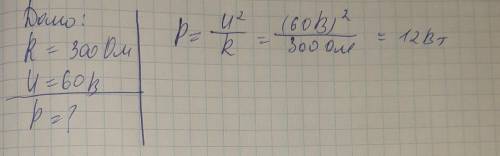 Дано:
R = 300 Ом
U = 60В
P = ?
P = U²/R = (60В)²/300 Ом = 12Вт